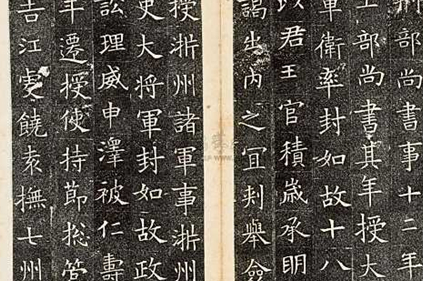 刑部尚書事十二年
工部尚書其年授大
軍衛率封如故十八
以君王官積歲承明
謁出內之宜刾舉僉
授淅州諸軍事淅州
史大将軍封如故政
訟理威申澤被仁壽
年遷授使持節揔管
吉江虔饒袁撫七州